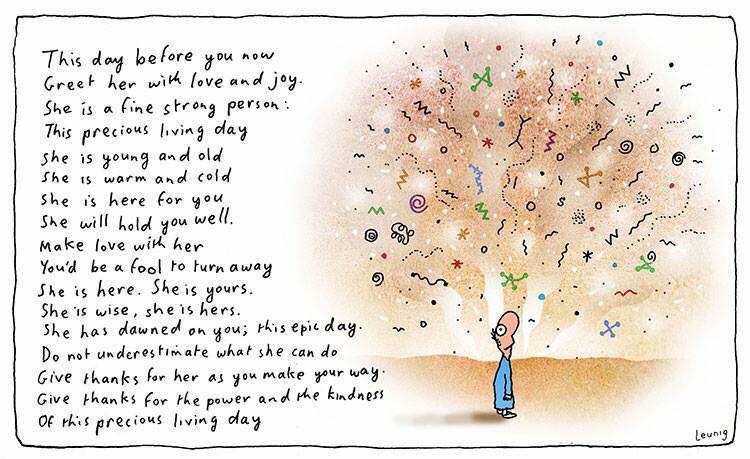 This day before you now
Greet her with love and joy.
She is a fine strong person:
This precious living day
She is young and old
She is warm and cold
She is here for you
She will hold you well.
Make love with her
You'd be a fool to turn away
She is here. She is yours.
She is wise, she is hers.
She has dawned on you; this epic day.
Do not underestimate what she can do
Give thanks for her as you make your way.
Give thanks for the power and the kindness
Of this precious living day
Leunig